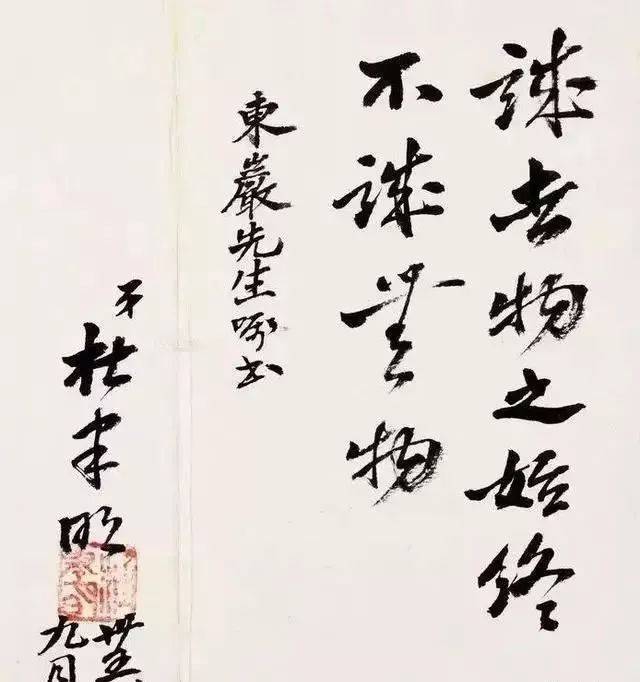 誠者物之始終
不誠無物
東巖先生囑書
杜聿明
九月